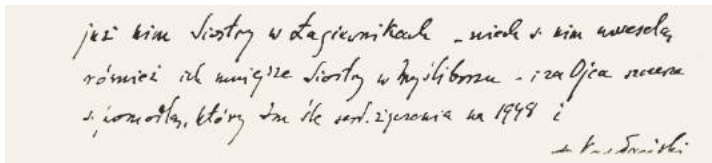 już nim Siostry w Łagiewnikach - niech s. nim uweselą
również ich mniejsze Siostry w Myśliborzu - i za Ojca
s. pomodlą, który Im śle serd. życzenia na 1948 i